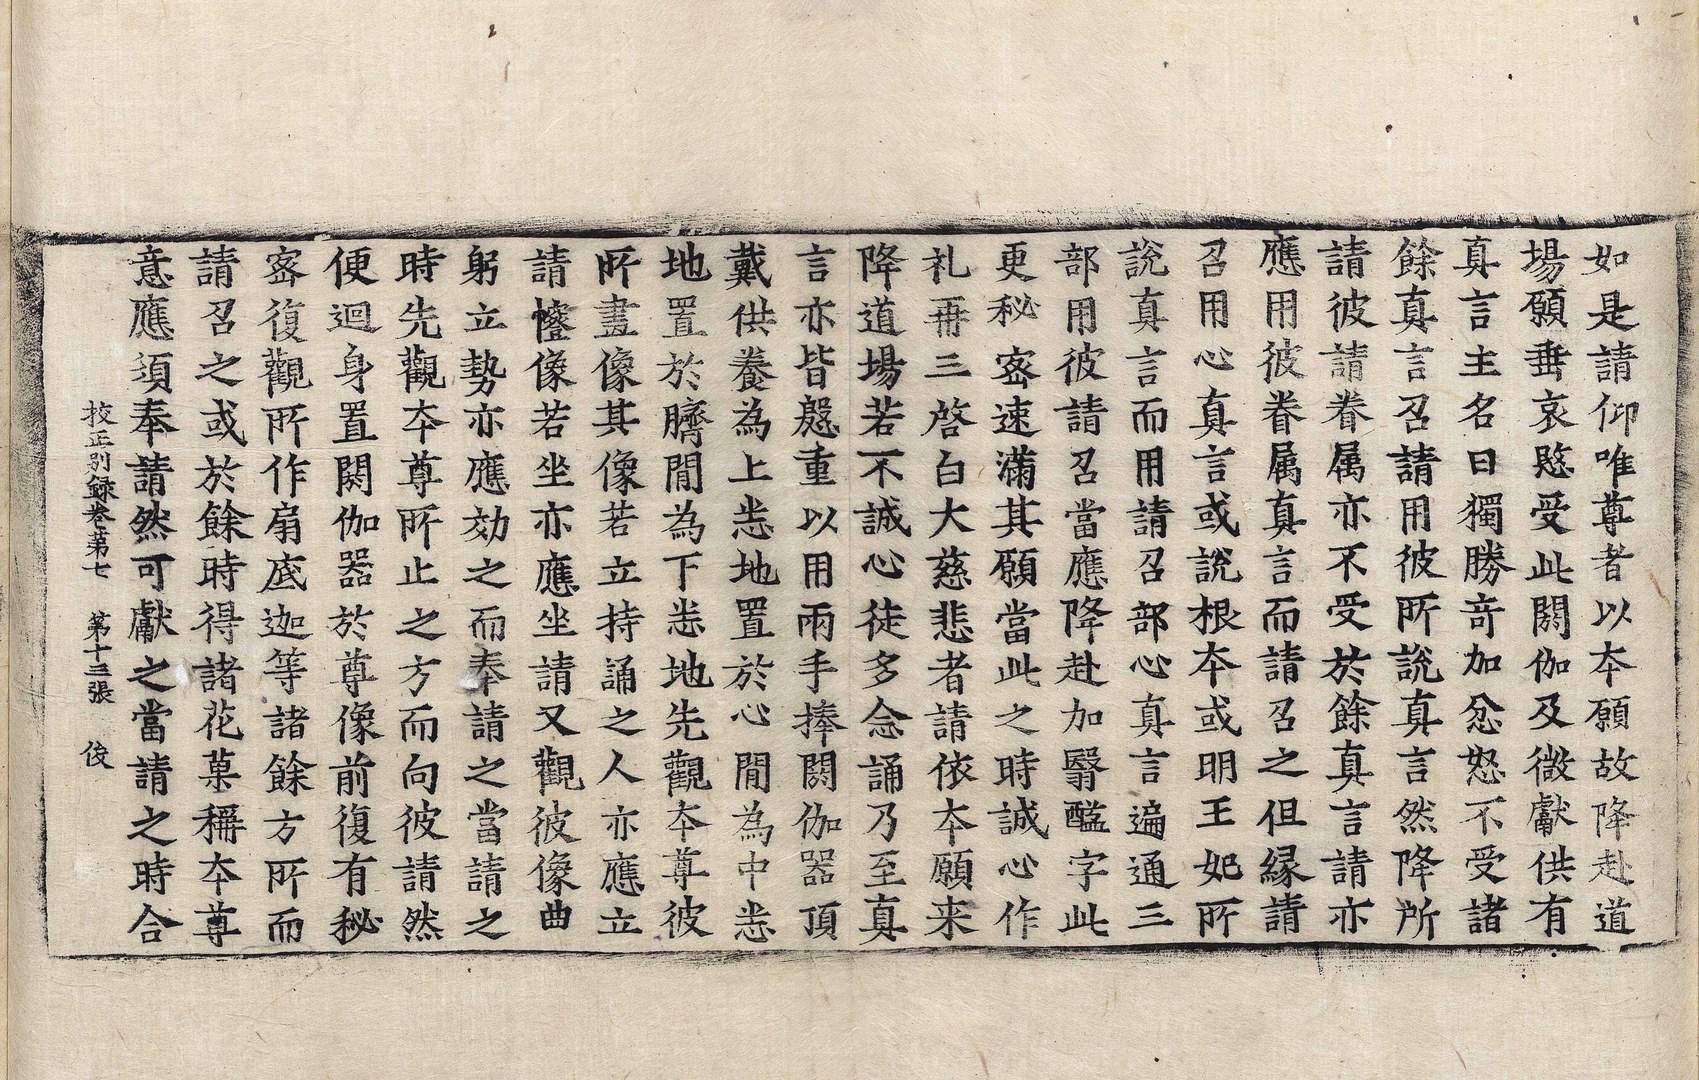 如是請仰唯尊者以本願故降赴道
場願垂哀愍受此閼伽及微獻供有
真言主名曰獨勝奇加忿怒不受諸
餘真言召請用彼所說真言然降所
請彼請眷属亦不受於餘真言請亦
應用彼眷属真言而請召之但緣請
召用心真言或說根本或明王妃所
說真言而用請召部心真言遍通三
部用彼請召當應降赴加翳醯字此
更秘宻速滿其願當此之時誠心作
礼再三啓白大慈悲者請依本願来
降道場若不誠心徒多念誦乃至真
言亦皆慇重以用兩手捧閼伽器頂
戴供養為上悉地置於心間為中悉
地置於臍間為下悉地先觀本尊彼
所畫像其像若立持誦之人亦應立
請㡧像若坐亦應坐請又觀彼像曲
躬立勢亦應効之而奉請之當請之
時先觀本尊所止之方而向彼請然
便迴身置閼伽器於尊像前復有秘
宻復觀所作扇底迦等諸餘方所而
請召之或於餘時得諸花菓稱本尊
意應須奉請然可獻之當請之時合
挍正別録卷苐七 苐十三張 俊